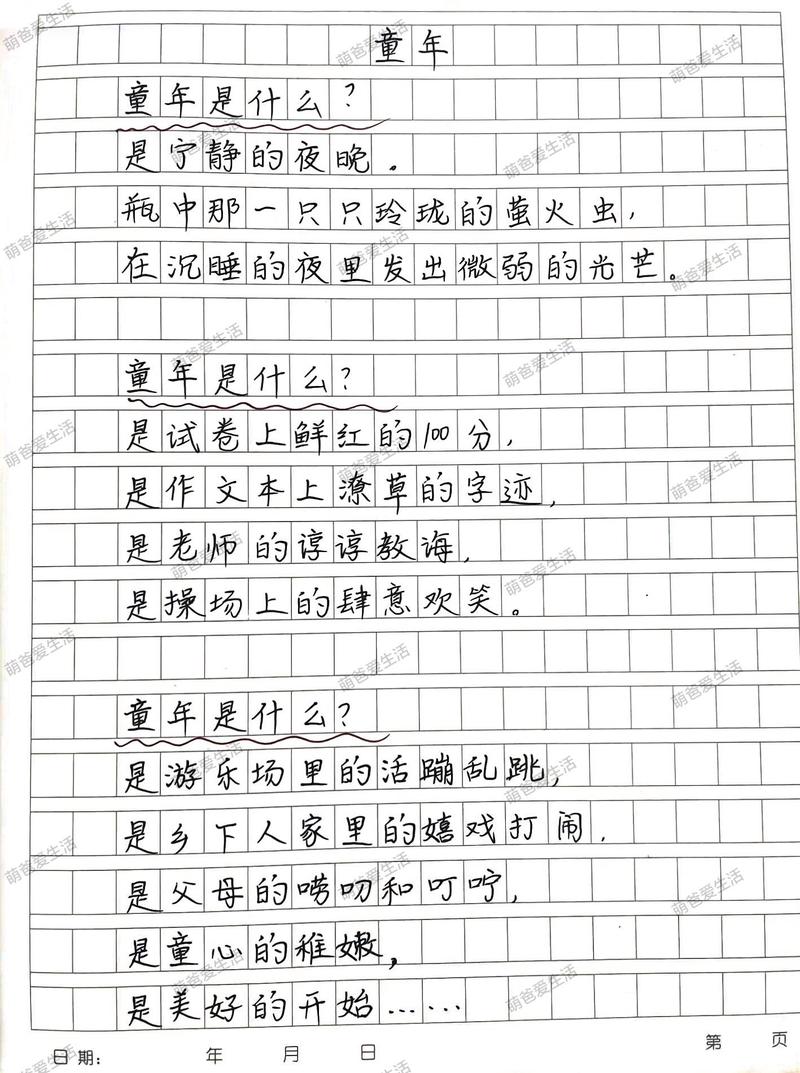 童年
童年是什么?
是宁静的夜晚.
瓶中那一只只玲珑的萤火虫,
在沉睡的夜里发出微弱的光芒。
童年是什么?
是试卷上鲜红的100分,
是作文本上潦草的字迹,
是老师的谆谆教诲,
是操场上的肆意欢笑。
童年是什么?
是游乐场里的活蹦乱跳,
是乡下人家里的嬉戏打闹,
是父母的唠叨和叮咛,
是童心的稚嫩,
是美好的开始……
日期: 年 月 日 第 页
萌爸爱生活